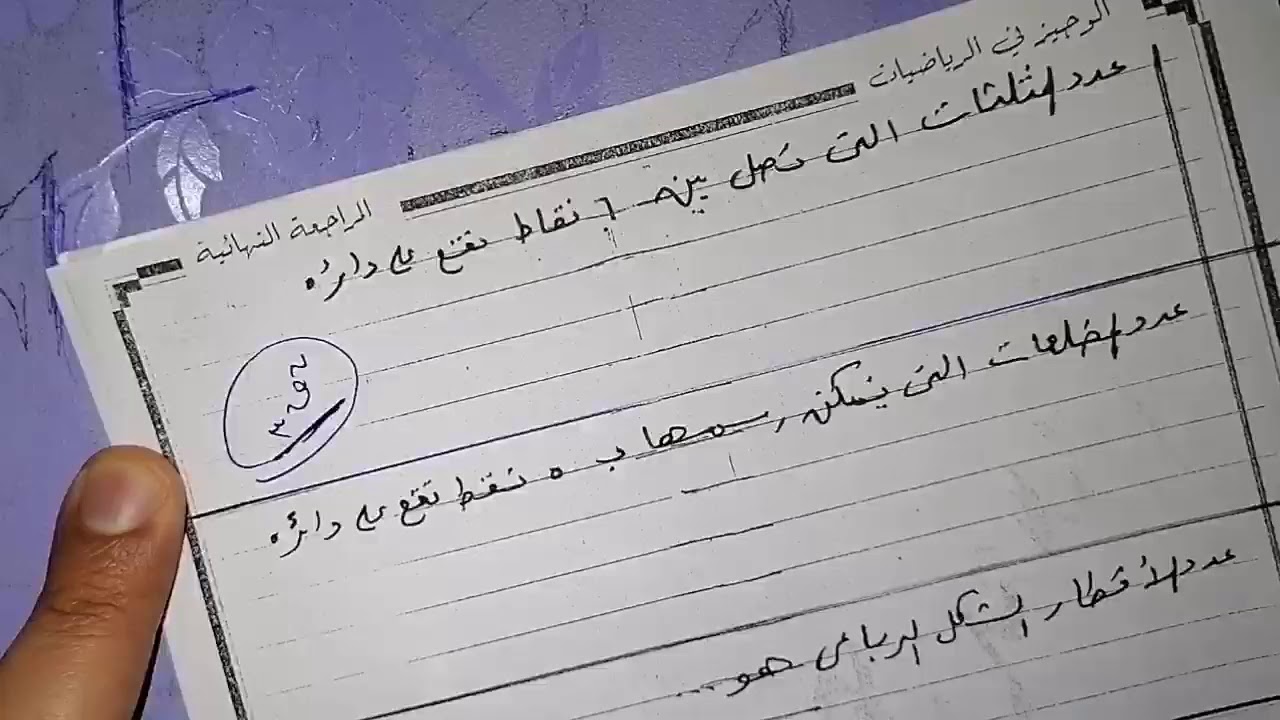 الوجيز في الرياضيات
المراجعة النهائية
عدد المثلثات التى تصل بين ٦ نقاط تقع على دائره
٦ق٣
عدد المضلعات التى يمكن رسمها ب ٥ نقط تقع على دائره
عدد الأقطار الشكل الرباعى هو...